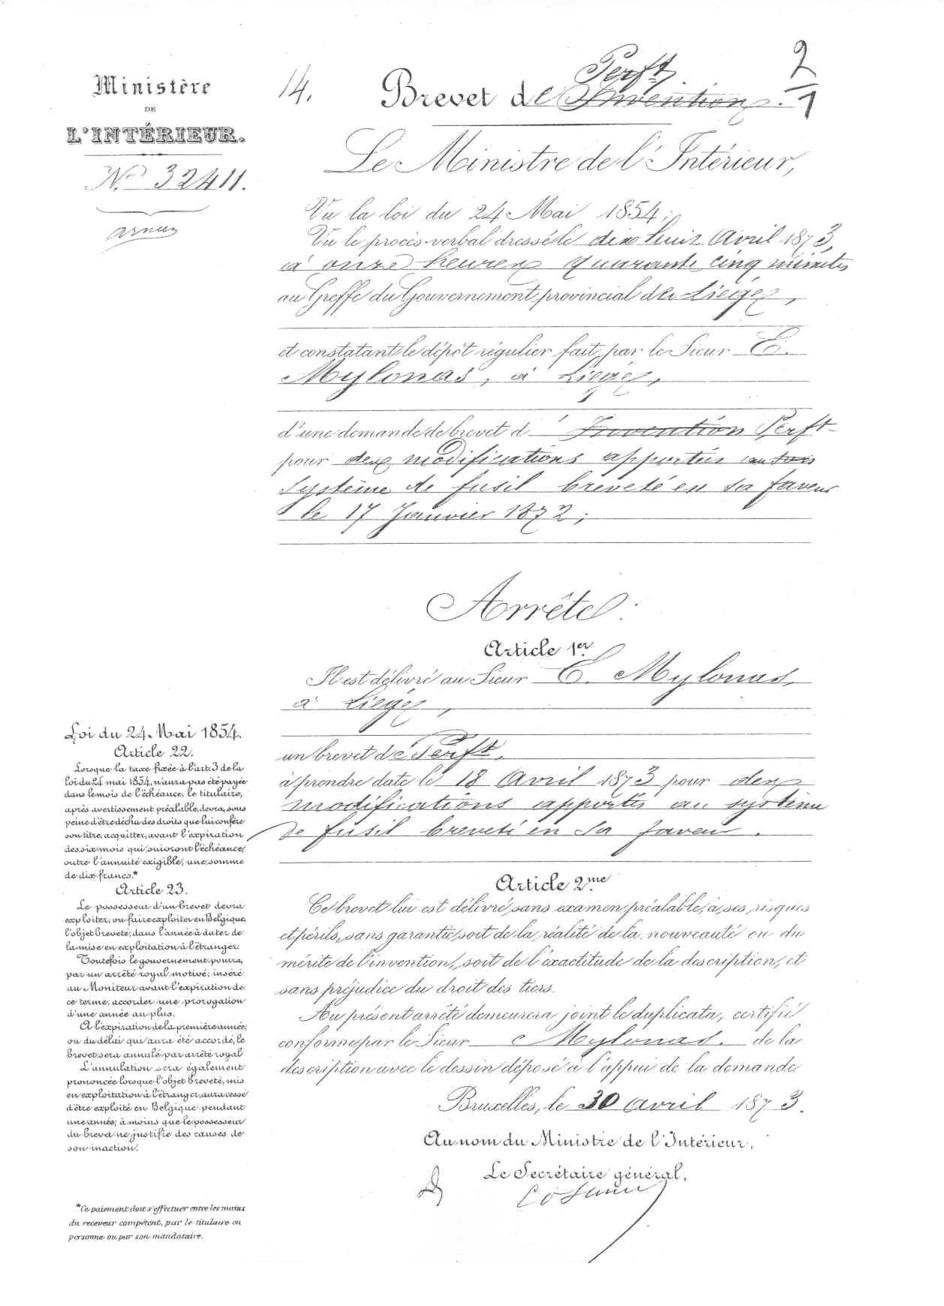 Ministère
DE
L'INTÉRIEUR.
N° 32411.
armes
14.
Perft.
2/1
Brevet de l'Invention.
Le Ministre de l'Intérieur,
Vu la loi du 24 Mai 1854;
Vu le procès-verbal dressé le dix huit Avril 1873,
à onze heures quarante cinq minutes
au Greffe du Gouvernement provincial de Liège,
et constatant le dépôt régulier fait par le Sieur E.
Mylonas, à Liège,
d'une demande de brevet d'Invention Perft.
pour des modifications apportées au
système de fusil breveté en sa faveur
le 17 Janvier 1872;
Arrête:
Article 1er
Il est délivré au Sieur E. Mylonas,
à Liège,
un brevet de Perft.
à prendre date le 18 Avril 1873 pour des
modifications apportés au système
de fusil breveté en sa faveur.
Article 2me
Ce brevet lui est délivré, sans examen préalable, à ses risques
et périls, sans garantie, soit de la réalité de la nouveauté ou du
mérite de l'invention, soit de l'exactitude de la description, et
sans préjudice du droit des tiers.
Au présent arrêté demeurera joint le duplicata, certifié
conforme par le Sieur Mylonas. de la
description avec le dessin déposé à l'appui de la demande
Bruxelles, le 30 avril 1873.
Au nom du Ministre de l'Intérieur.
Le Secrétaire général,
Loi du 24 Mai 1854.
Article 22.
Lorsque la taxe fixée à l'art. 3 de la
loi du 24 mai 1854, n'aura pas été payée
dans le mois de l'échéance, le titulaire,
après avertissement préalable, devra, sous
peine d'être déchu des droits que lui confère
son titre, acquitter, avant l'expiration
des six mois qui suivront l'échéance,
outre l'annuité exigible, une somme
de dix francs.*
Article 23.
Le possesseur d'un brevet devra
exploiter, ou faire exploiter en Belgique,
l'objet breveté, dans l'année à dater de
la mise en exploitation à l'étranger.
Toutefois le gouvernement pourra,
par un arrêté royal motivé, inséré
au Moniteur avant l'expiration de
ce terme, accorder une prorogation
d'une année au plus.
A l'expiration de la première année,
ou du délai qui aura été accordé, le
brevet sera annulé par arrêté royal
L'annulation sera également
prononcée lorsque l'objet breveté, mis
en exploitation à l'étranger, aura cessé
d'être exploité en Belgique pendant
une année, à moins que le possesseur
du brevet ne justifie des causes de
son inaction.
*Ce paiement doit s'effectuer entre les mains
du receveur compétent, par le titulaire en
personne ou par son mandataire.